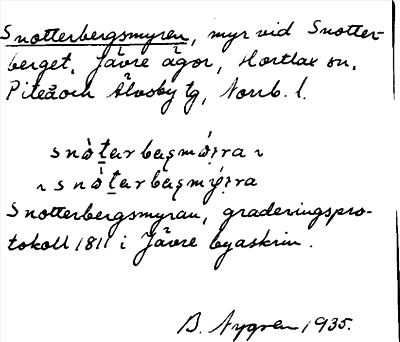 Snotterbergsmyren, myr vid Snotter-
berget, Jävre ägor, Hortlax sn,
Piteå och Älvsby tg, Norrb. l.
snò̀tarbæşmýi̯ra ~
~ snò̀tarbæ̀şmýi̯ra
Snotterbergsmyran, graderingspro-
tokoll 1811 i Jävre byaskrin.
B. Nygren 1935.